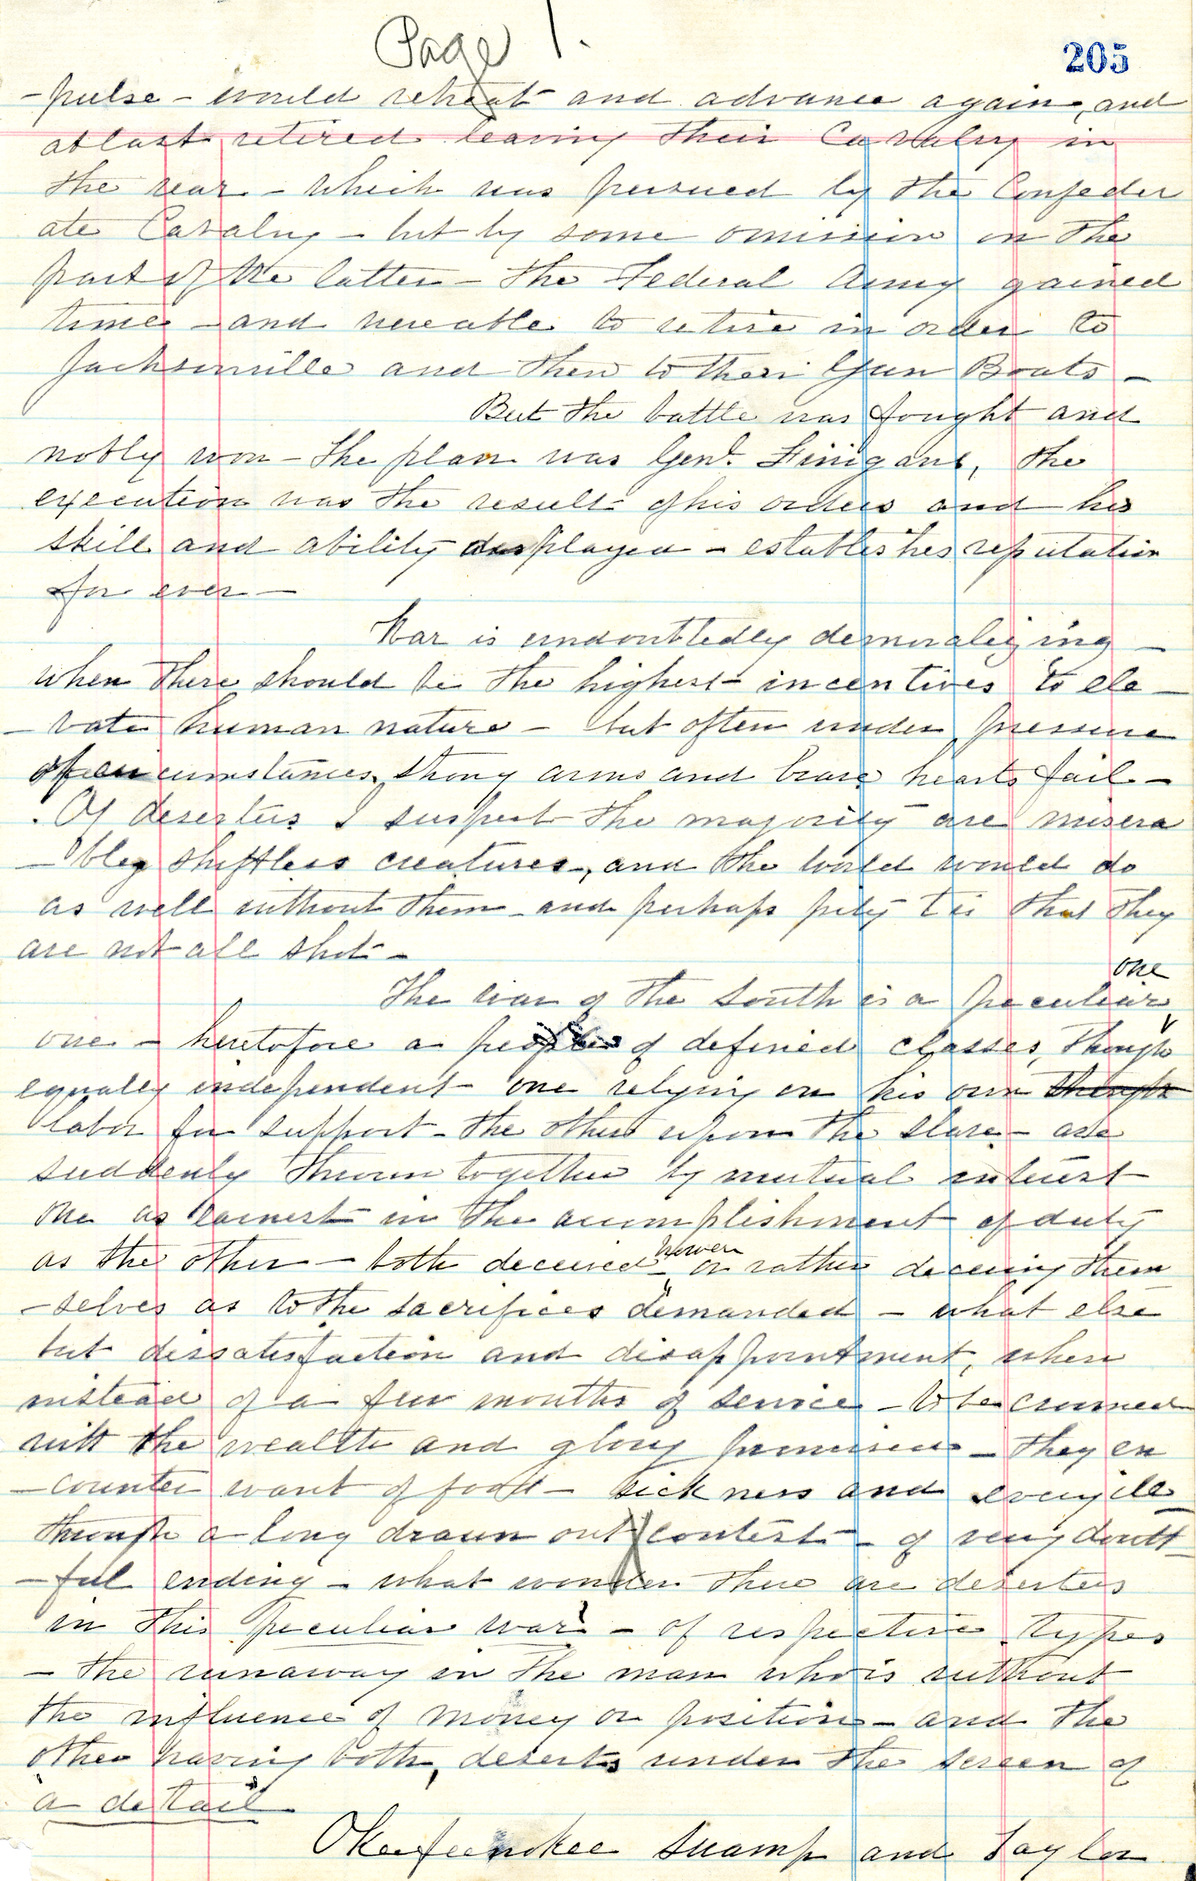 Page 1.
205
- pulse - would retreat and advance again, and
at last retired leaving their Cavalry in
the rear - which was pursued by the Confeder
ate Cavalry - but by some omission on the
part of the latter - the Federal Army gained
time - and were able to retire in order to
Jacksonville and then to their Gun Boats -
But the battle was fought and
nobly won - the plan was Genl. Finigans, the
execution was the result of his orders and his
skill and ability displayed - establishes reputation
for ever -
War is undoubtedly demoralizing -
when there should be the highest incentives to ele -
- vate human nature - but often under pressure
of circumstances, strong arms and brave hearts fail -
. Of deserters I suspect the majority are misera
- bley shiftless creatures, and the world would do
as well without them - and perhaps pity tis that they
are not all shot -
one
The war of the South is a peculiar
one - heretofore a people of defined classes, though
equally independent - one relying on his own though
labor for support - the other upon the slave - are
suddenly thrown together by mutual interest
one as earnest in the accomplishment of duty
as the other - both deceived - or rather deceiving them
- selves as to the sacrifices demanded - what else
but dissatisfaction and disappointment, when
instead of a few months of service - to be crowned
with the wealth and glory - they en
- counter want of food - sickness and every ill
through a long drawn out contest - of very doubt -
- ful ending - what wonder there are deserters
in this peculiar war? - of respective types
- the runaway in the man who is without
the influence of money or position - and the
other having both, deserts under the screen of
"a detail"
Okeefeenokee Swamp and Taylor